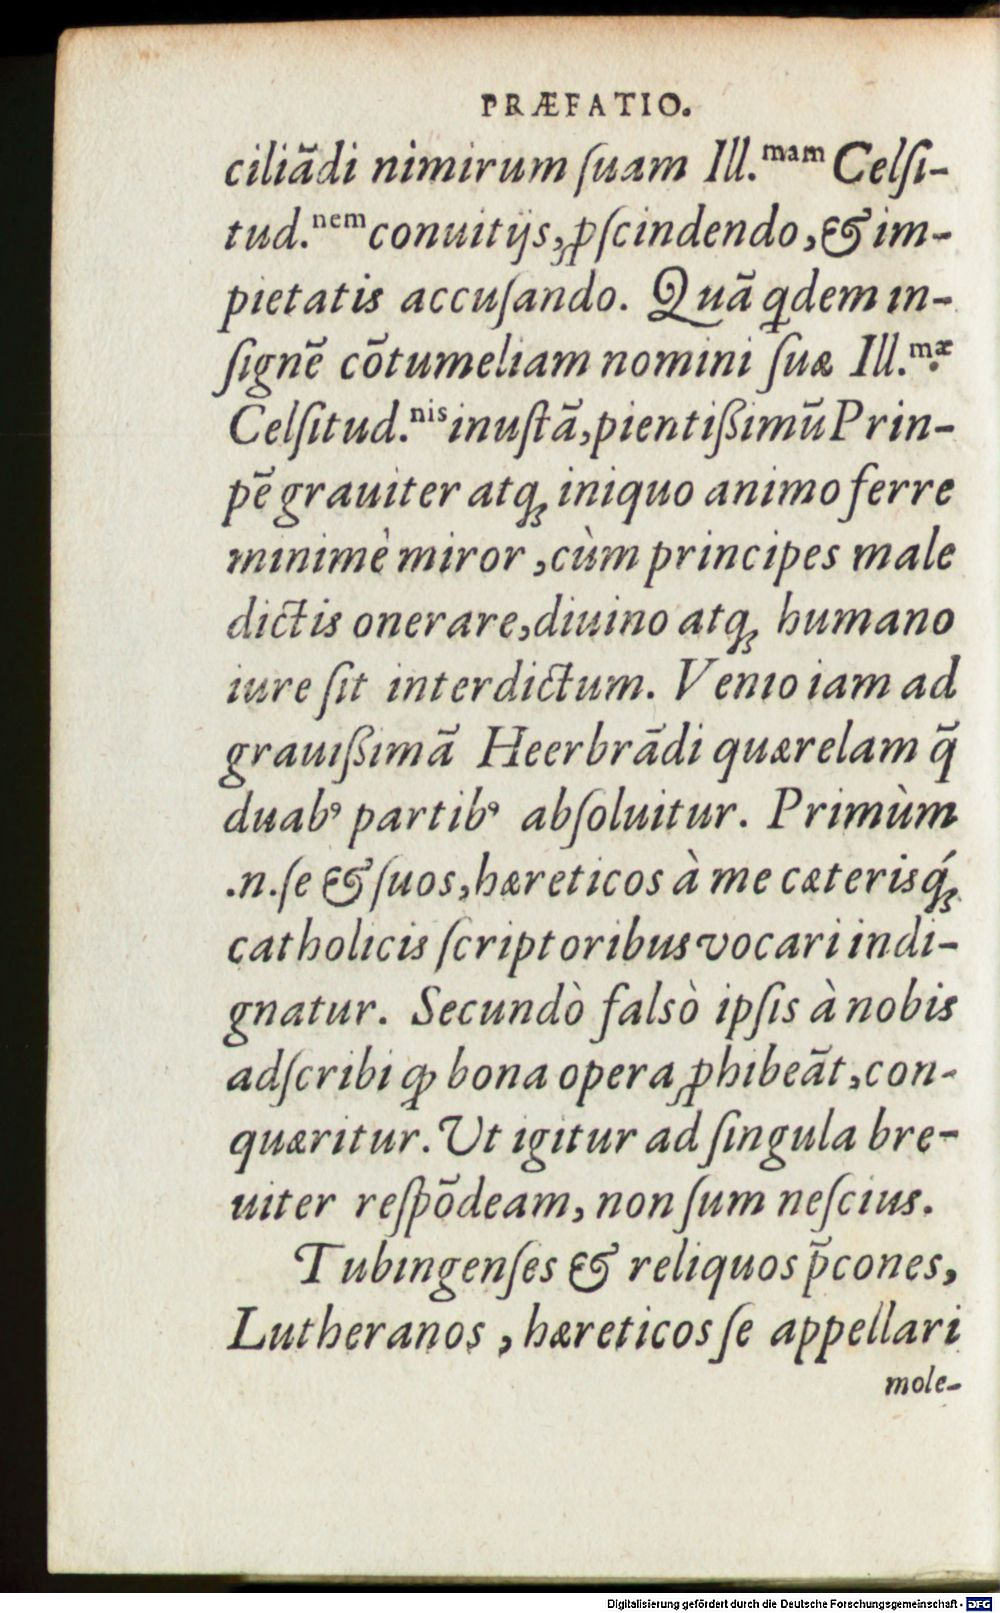 PRÆFATIO.
ciliãdi nimirum ſuam Ill.ᵐᵃᵐ Celſi-
tud.ⁿᵉᵐ conuitijs, ꝓſcindendo, & im-
pietatis accuſando. Quã qdem in-
ſignẽ cõtumeliam nomini ſuæ Ill.ᵐæ
Celſitud.ⁿⁱˢ inuſtã, pientißimũ Prin-
pẽ grauiter atq; iniquo animo ferre
minimè miror, cùm principes male
dictis onerare, diuino atq; humano
iure ſit interdictum. Venio iam ad
grauißimã Heerbrãdi quærelam q̃
duabꝰ partibꝰ abſoluitur. Primùm
.n. ſe & ſuos, hæreticos à me cæterisq́;
catholicis ſcriptoribus vocari indi-
gnatur. Secundò falsò ipſis à nobis
adſcribi ꝙ bona opera ꝓhibeãt, con-
quæritur. Ut igitur ad ſingula bre-
uiter reſpõdeam, non ſum neſcius.
Tubingenſes & reliquos p̃cones,
Lutheranos, hæreticos ſe appellari
mole-
Digitalisierung gefördert durch die Deutsche Forschungsgemeinschaft - DFG